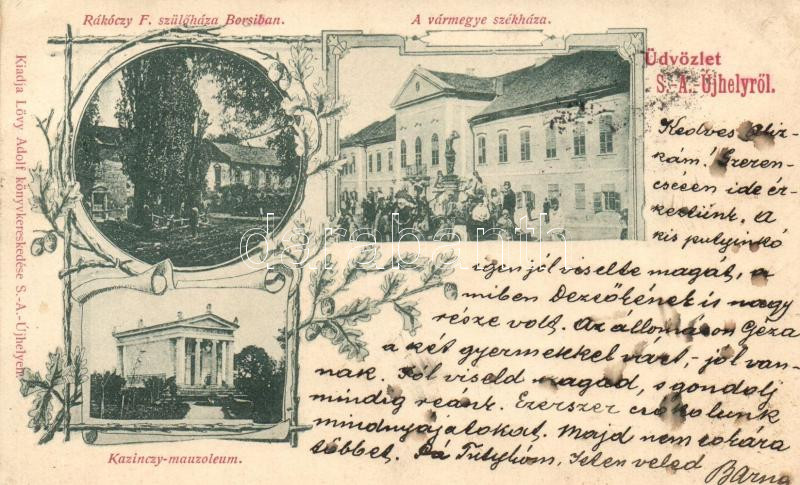 Rákóczy F. szülőháza Borsiban.
A vármegye székháza.
Üdvözlet
S.-A.-Újhelyről.
Kiadja Lövy Adolf könyvkereskedése S.-A.-Újhelyen.
Kazinczy-mauzoleum.
darabanth
Kedves
kám! Szeren-
csésen ide ér-
keztünk. A
kis pulyinkó
igen jól viselte magát, a
miben Dezsőkének is nagy
része volt. Az állomáson Géza
a két gyermekkel várt, - jól van-
nak. Jól viseld magad, s gondolj
mindig reánk. Ezerszer csókolunk
mindnyájatokat. Majd nem sokára
többet. Pá Isten veled
Barna